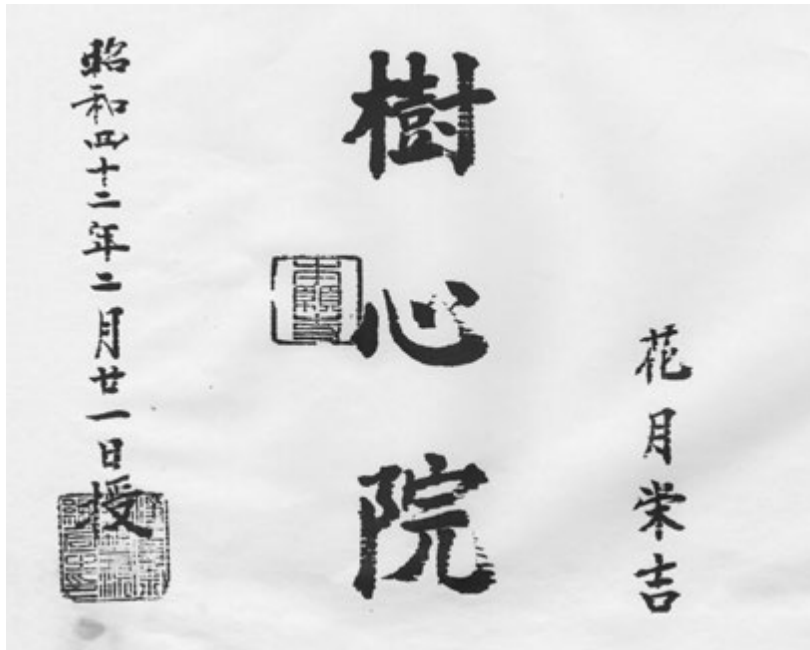 花月栄吉
樹心院
本願寺
昭和四十二年二月廿一日授